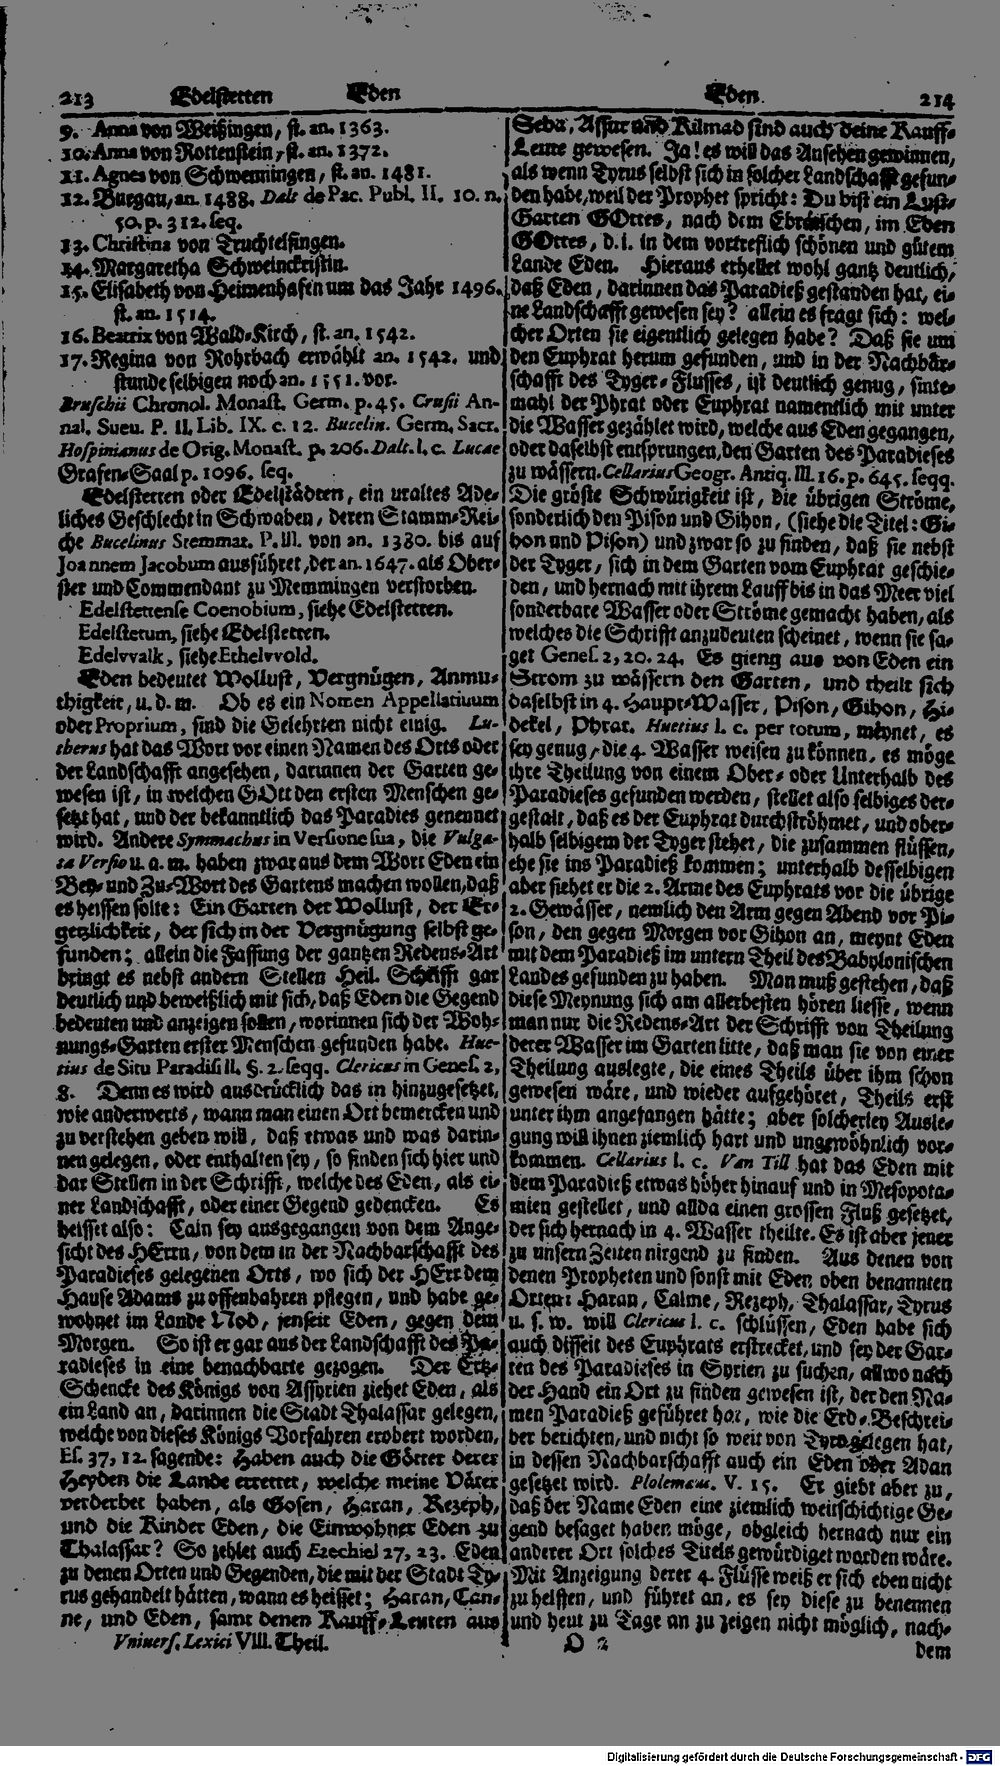 213 Edelstetten Eden
Eden 214
9. Anna von Weißingen, st. an. 1363.
10. Anna von Rottenstein, st. an. 1372.
11. Agnes von Schwenningen, st. an. 1481.
12. Burgau, an. 1488. Dalt de Pac. Publ. II. 10. n.
50. p. 312. seq.
13. Christina von Truchtelfingen.
14. Margaretha Schweinckristin.
15. Elisabeth von Heimenhafin um das Jahr 1496.
st. an. 1514.
16. Beatrix von Wald-Kirch, st. an. 1542.
17. Regina von Rohrbach erwählt an. 1542. und
stunde selbigen noch an. 1551. vor.
Bruschii Chronol. Monast. Germ. p. 45. Crusii An-
nal. Suev. P. II. Lib. IX. c. 12. Bucelin. Germ. Sacr.
Hospinianus de Orig. Monast. p. 206. Dalt. l. c. Lucae
Grafen-Saal p. 1096. seq.
Edelstetten oder Edelstädten, ein uraltes Ade-
liches Geschlecht in Schwaben, deren Stamm-Rei-
che Bucelinus Stemmat. P. III. von an. 1380. bis auf
Joannem Jacobum ausführet, der an. 1647. als Ober-
ster und Commendant zu Memmingen verstorben.
Edelstettense Coenobium, siehe Edelstetten.
Edelstetum, siehe Edelstetten.
Edelvvalk, siehe Ethelvvold.
Eden bedeutet Wollust, Vergnügen, Anmu-
thigkeit, u. d. m. Ob es ein Nomen Appellativum
oder Proprium, sind die Gelehrten nicht einig. Lu-
therus hat das Wort vor einen Namen des Orts oder
der Landschafft angesehen, darinnen der Garten ge-
wesen ist, in welchen GOtt den ersten Menschen ge-
setzt hat, und der bekanntlich das Paradies genennet
wird. Andere Symmachus in Versione sua, die Vulga-
ta Versio u. a. m. haben zwar aus dem Wort Eden ein
Bey- und Zu-Wort des Gartens machen wollen, daß
es heissen solte: Ein Garten der Wollust, der Er-
getzlichkeit, der sich in der Vergnügung selbst ge-
funden; allein die Fassung der gantzen Redens-Art
bringt es nebst andern Stellen Heil. Schrifft gar
deutlich und beweißlich mit sich, daß Eden die Gegend
bedeuten und anzeigen sollen, worinnen sich der Woh-
nungs-Garten erster Menschen gefunden habe. Hue-
tius de Situ Paradisi II. §. 2. seqq. Clericus in Genes. 2,
8. Denn es wird ausdrücklich das in hinzugesetzet,
wie anderwerts, wann man einen Ort bemercken und
zu verstehen geben will, daß etwas und was darin-
nen gelegen, oder enthalten sey, so finden sich hier und
dar Stellen in der Schrifft, welche des Eden, als ei-
ner Landschafft, oder einer Gegend gedencken. Es
heisset also: Cain sey ausgegangen von dem Ange-
sicht des HErrn, von dem in der Nachbarschafft des
Paradieses gelegenen Orts, wo sich der HErr dem
Hause Adams zu offenbahren pflegen, und habe ge-
wohnet im Lande Nod, jenseit Eden, gegen dem
Morgen. So ist er gar aus der Landschafft des Pa-
radieses in eine benachbarte gezogen. Der Ertz-
Schencke des Königs von Assyrien ziehet Eden, als
ein Land an, darinnen die Stadt Thalassar gelegen,
welche von dieses Königs Vorfahren erobert worden,
Es. 37, 12. sagende: Haben auch die Götter derer
Heyden die Lande errettet, welche meine Väter
verderbet haben, als Gosen, Haran, Rezeph,
und die Kinder Eden, die Einwohner Eden zu
Thalassar? So zehlet auch Ezechiel 27, 23. Eden
zu denen Orten und Gegenden, die mit der Stadt Ty-
rus gehandelt hätten, wann es heisset; Haran, Can-
ne, und Eden, samt denen Kauff-Leuten aus
Univers. Lexici VIII. Theil.
Seba, Assur und Kilmad sind auch deine Kauff-
Leute gewesen. Ja! es will das Ansehen gewinnen,
als wenn Tyrus selbst sich in solcher Landschafft gefun-
den habe, weil der Prophet spricht: Du bist ein Lust-
Garten GOttes, nach dem Ebräischen, im Eden
GOttes, d. i. in dem vortreflich schönen und gutem
Lande Eden. Hieraus erhellet wohl gantz deutlich,
daß Eden, darinnen das Paradieß gestanden hat, ei-
ne Landschafft gewesen sey? allein es fragt sich: wel-
cher Orten sie eigentlich gelegen habe? Daß sie um
den Euphrat herum gefunden, und in der Nachbar-
schafft des Tyger-Flusses, ist deutlich genug, sinte-
mahl der Phrat oder Euphrat namentlich mit unter
die Wasser gezählet wird, welche aus Eden gegangen,
oder daselbst entsprungen, den Garten des Paradieses
zu wässern. Cellarius Geogr. Antiq. III. 16. p. 645. seqq.
Die gröste Schwürigkeit ist, die übrigen Ströme,
sonderlich den Pison und Gihon, (siehe die Titel: Gi-
hon und Pison) und zwar so zu finden, daß sie nebst
der Tyger, sich in dem Garten vom Euphrat geschie-
den, und hernach mit ihrem Lauff bis in das Meer viel
sonderbare Wasser oder Ströme gemacht haben, als
welches die Schrifft anzudeuten scheinet, wenn sie sa-
get Genes. 2, 20. 24. Es gieng aus von Eden ein
Strom zu wässern den Garten, und theilt sich
daselbst in 4. Haupt-Wasser, Pison, Gihon, Hi-
dekel, Phrat. Huetius l. c. per totum, meynet, es
sey genug, die 4. Wasser weisen zu können, es möge
ihre Theilung von einem Ober- oder Unterhalb des
Paradieses gefunden werden, stellet also selbiges der-
gestalt, daß es der Euphrat durchströhmet, und ober-
halb selbigem der Tyger stehet, die zusammen flüssen,
ehe sie ins Paradieß kommen; unterhalb desselbigen
aber siehet er die 2. Arme des Euphrats vor die übrige
2. Gewässer, nemlich den Arm gegen Abend vor Pi-
son, den gegen Morgen vor Gihon an, meynt Eden
mit dem Paradieß im untern Theil des Babylonischen
Landes gefunden zu haben. Man muß gestehen, daß
diese Meynung sich am allerbesten hören liesse, wenn
man nur die Redens-Art der Schrifft von Theilung
derer Wasser im Garten litte, daß man sie von einer
Theilung auslegte, die eines Theils über ihm schon
gewesen wäre, und wieder aufgehöret, Theils erst
unter ihm angefangen hätte; aber solcherley Ausle-
gung will ihnen ziemlich hart und ungewöhnlich vor-
kommen. Cellarius l. c. Van Till hat das Eden mit
dem Paradieß etwas höher hinauf und in Mesopota-
mien gestellet, und allda einen grossen Fluß gesetzet,
der sich hernach in 4. Wasser theilte. Es ist aber jener
zu unsern Zeiten nirgend zu finden. Aus denen von
denen Propheten und sonst mit Eden oben benannten
Orten: Haran, Calme, Rezeph, Thalassar, Tyrus
u. s. w. will Clericus l. c. schlüssen, Eden habe sich
auch disseit des Euphrats erstrecket, und sey der Gar-
ten des Paradieses in Syrien zu suchen, allwo nach
der Hand ein Ort zu finden gewesen ist, der den Na-
men Paradieß geführet hat, wie die Erd-Beschrei-
ber berichten, und nicht so weit von Tyro gelegen hat,
in dessen Nachbarschafft auch ein Eden oder Adan
gesetzet wird. Ptolemaeus. V. 15. Er giebt aber zu,
daß der Name Eden eine ziemlich weitschichtige Ge-
gend besaget haben möge, obgleich hernach nur ein
anderer Ort solches Titels gewürdiget worden wäre.
Mit Anzeigung derer 4. Flüsse weiß er sich eben nicht
zu helffen, und führet an, es sey diese zu benennen
und heut zu Tage an zu zeigen nicht möglich, nach-
O 2
dem
Digitalisierung gefördert durch die Deutsche Forschungsgemeinschaft - DFG